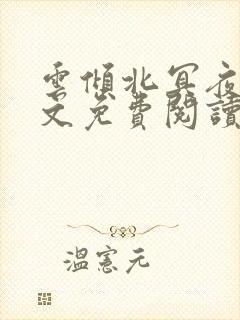 雲傾北冥夜
文免費閱讀
溫憲元